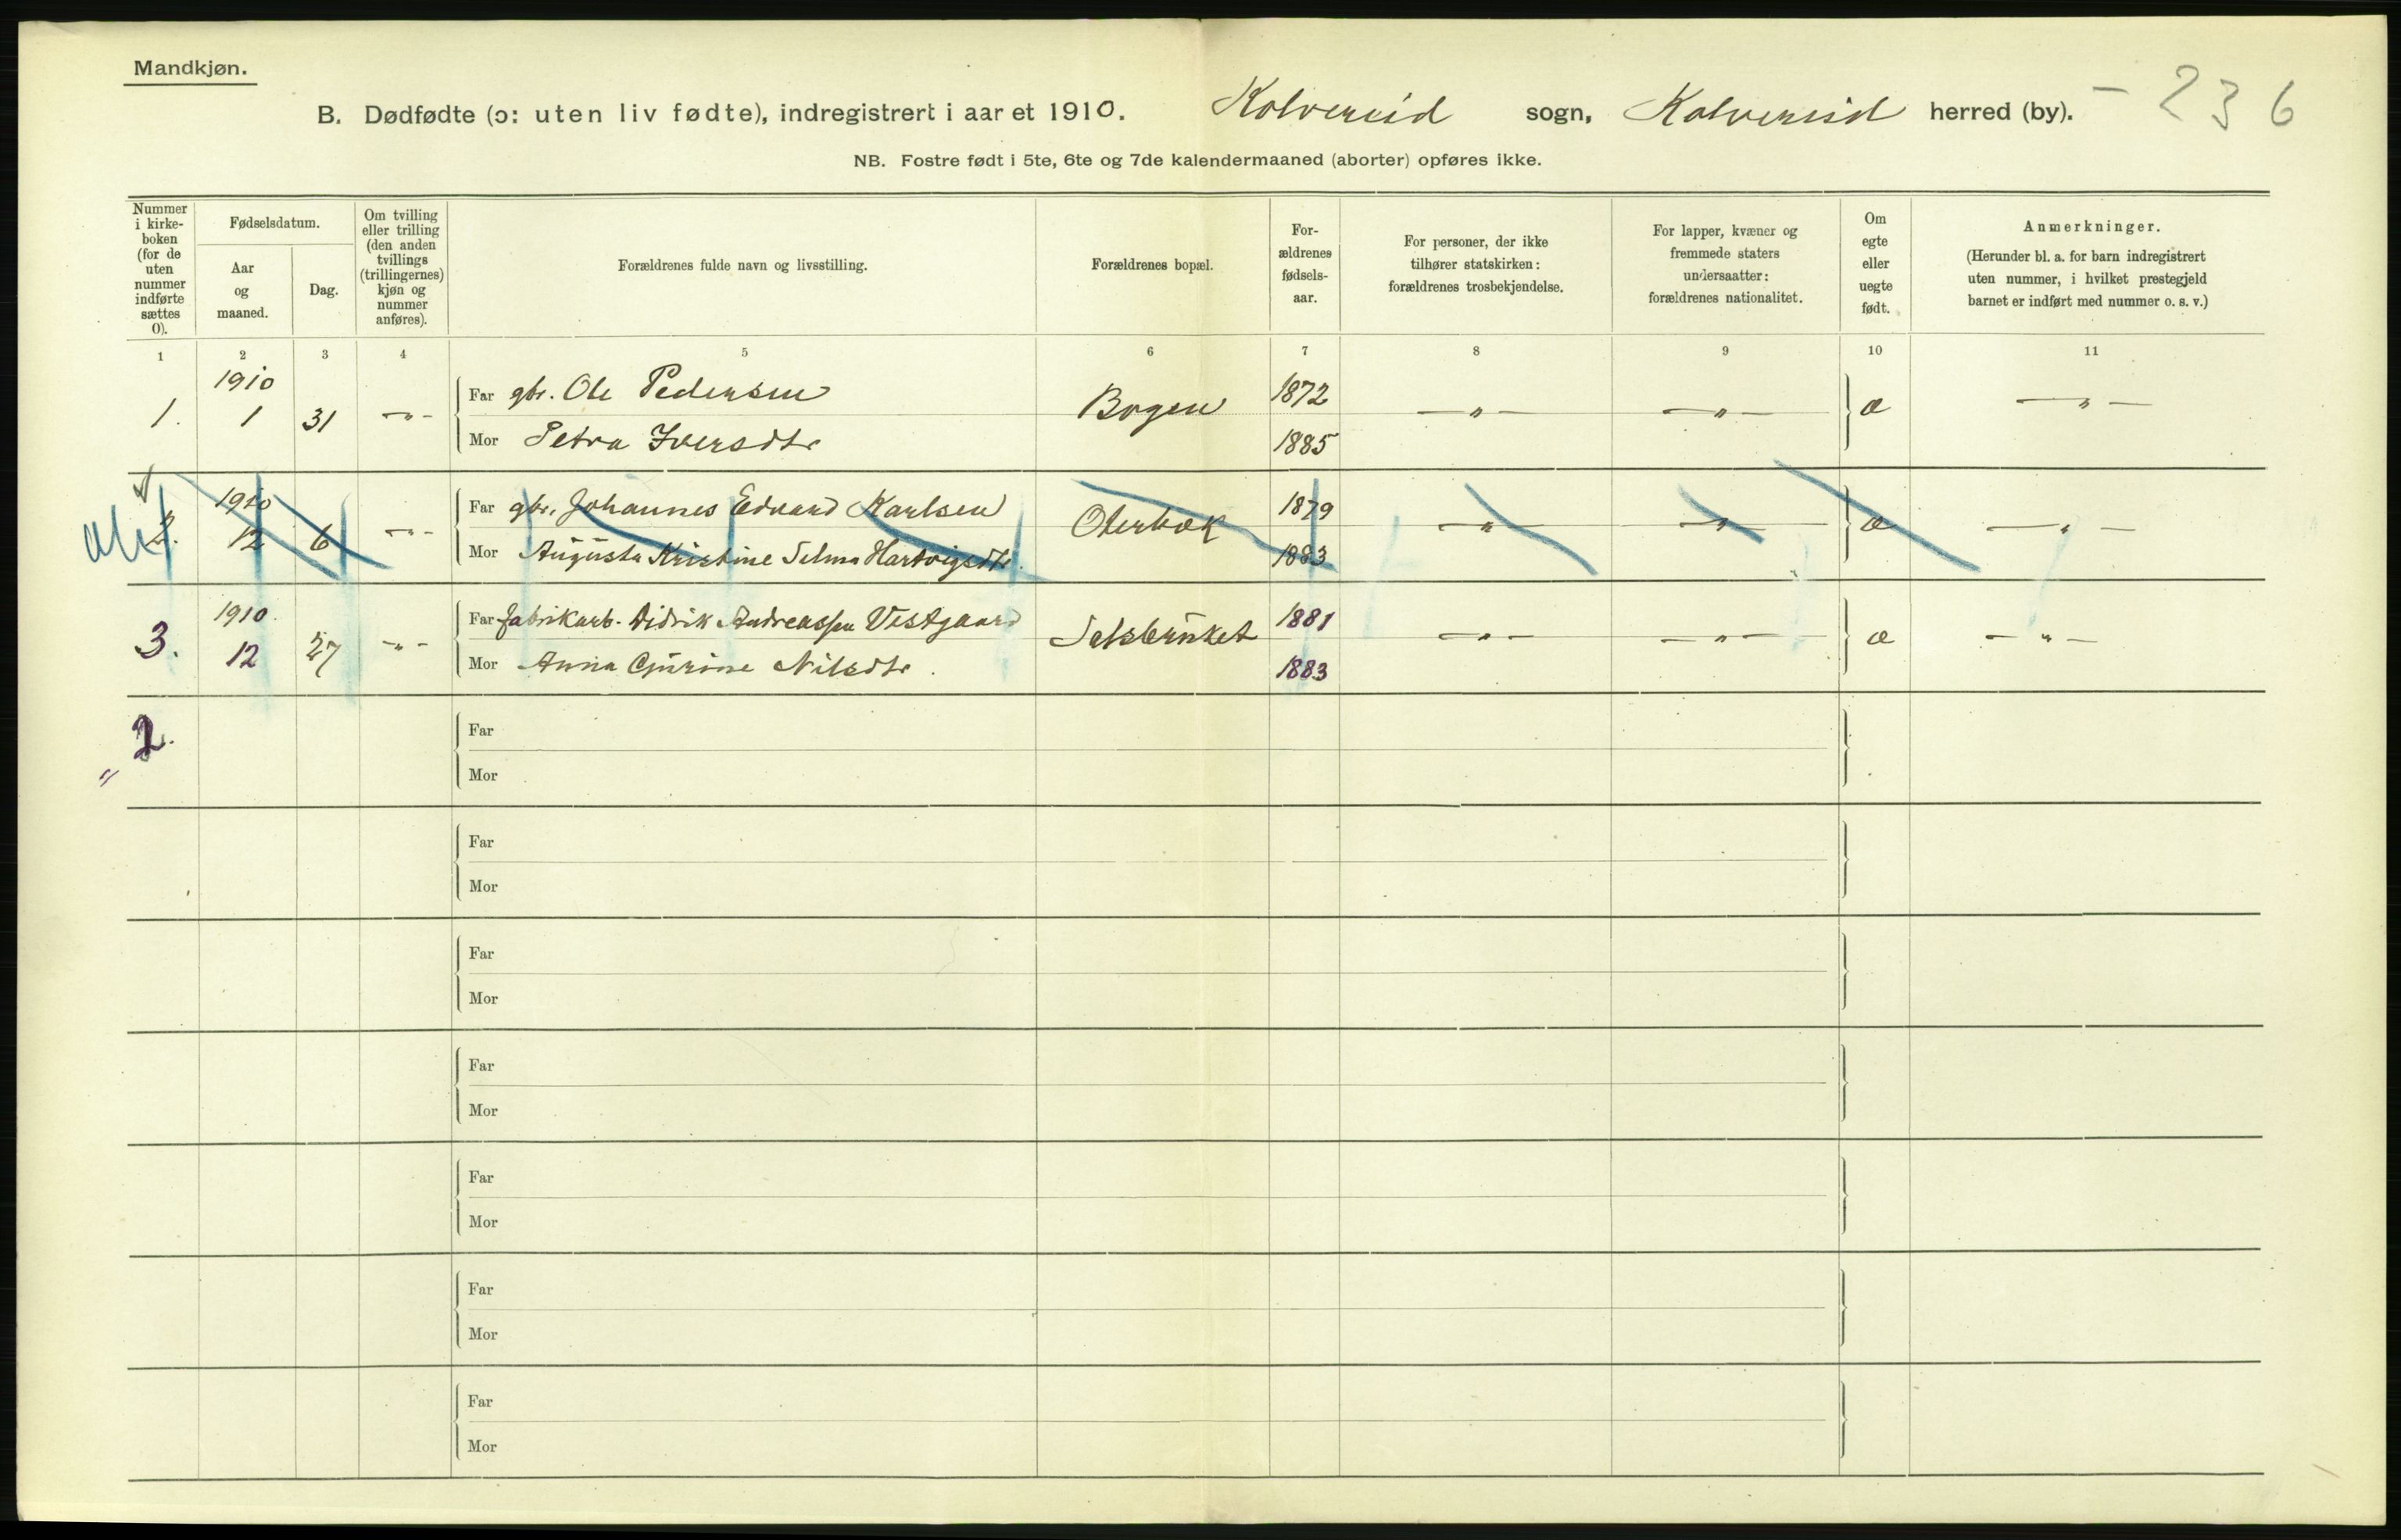 Mandkjøn.
B. Dødfødte (ɔ: uten liv fødte), indregistrert i aaret 1910. Kolvereid sogn, Kolvereid herred (by). - 236
NB. Fostre født i 5te, 6te og 7de kalendermaaned (aborter) opføres ikke.
Nummer i kirke-boken (for de uten nummer indførte sættes 0).
Fødselsdatum.
Aar og maaned.
Dag.
Om tvilling eller trilling (den anden tvillings (trillingernes) kjøn og nummer anføres).
Forældrenes fulde navn og livsstilling.
Forældrenes bopæl.
For-ældrenes fødsels-aar.
For personer, der ikke tilhører statskirken: forældrenes trosbekjendelse.
For lapper, kvæner og fremmede staters undersaatter: forældrenes nationalitet.
Om egte eller uegte født.
Anmerkninger.
(Herunder bl. a. for barn indregistrert uten nummer, i hvilket prestegjeld barnet er indført med nummer o. s. v.)
1 2 3 4 5 6 7 8 9 10 11
1. 1910 1 31 -"- Far gbr. Ole Pedersen Bogen 1872 -"- -"- æ -"-
Mor Petra Iversdtr 1885
2. 1910 12 6 -"- Far gbr. Johannes Edvard Karlsen Oterbæk 1879 -"- -"- æ -"-
Mor Augusta Kristine Selma Hartvigsdtr. 1883
3. 1910. 12 27 -"- Far fabrikarb. Didrik Andreassen Vestgaard Salsbruket 1881 -"- -"- æ -"-
Mor Anna Gurine Nilsdtr. 1883
2. Far
Mor
Far
Mor
Far
Mor
Far
Mor
Far
Mor
Far
Mor
Far
Mor